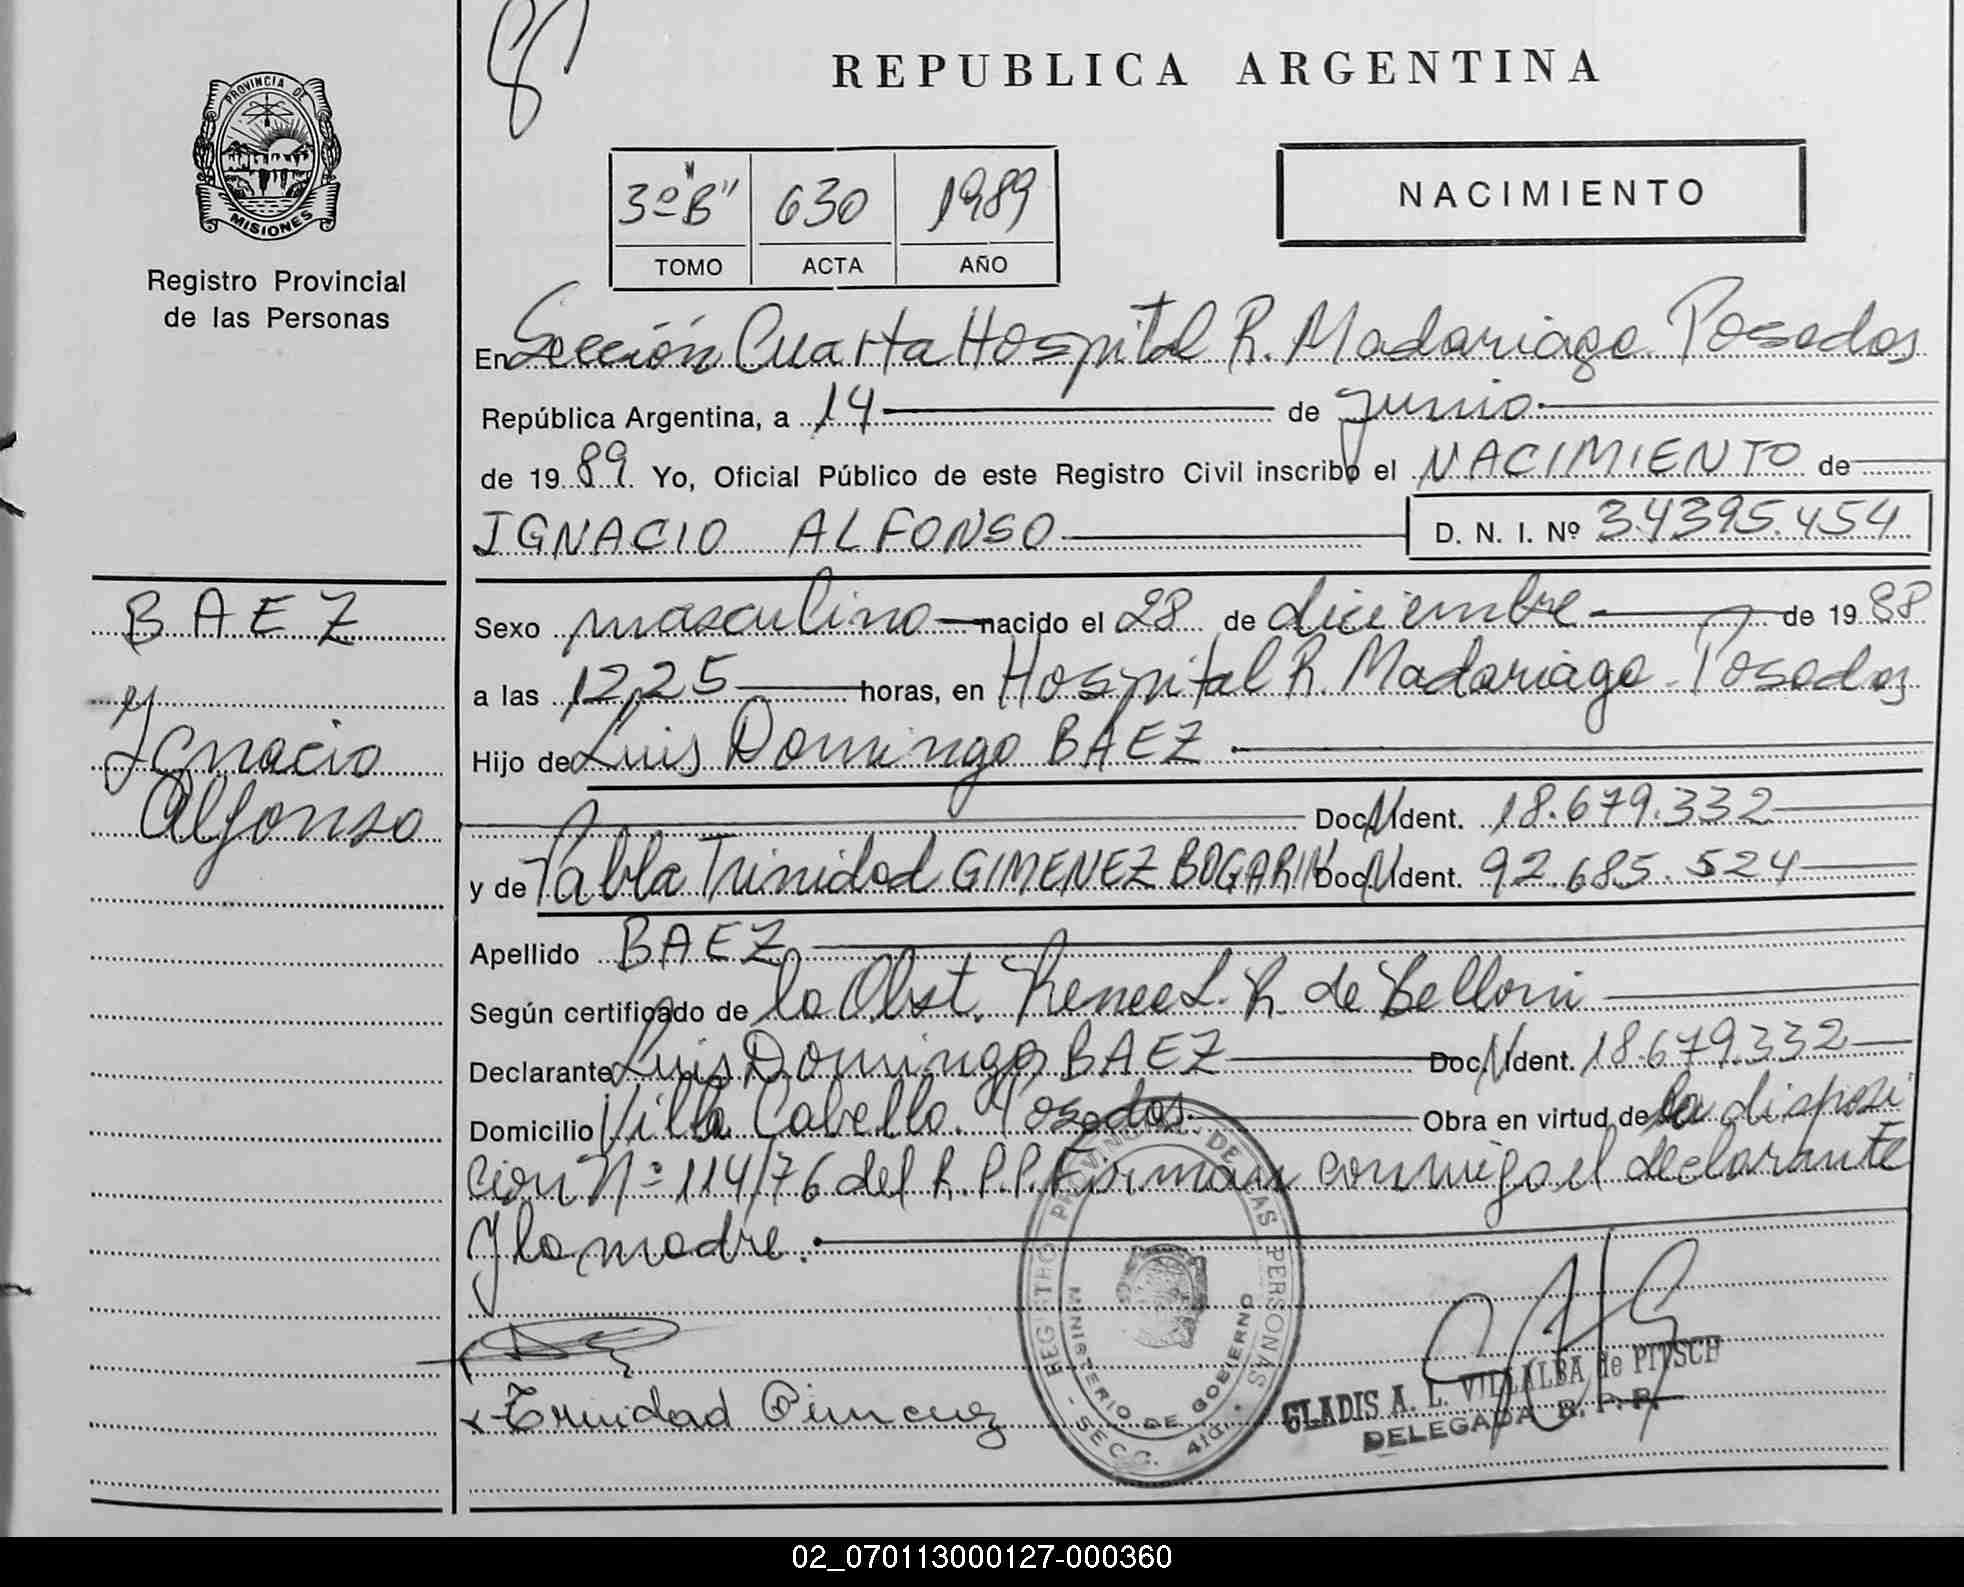 REPUBLICA ARGENTINA
PROVINCIA DE
MISIONES
Registro Provincial
de las Personas
3º "B" 630 1989
TOMO ACTA AÑO
NACIMIENTO
En Sección Cuarta Hospital R. Madariaga. Posadas
República Argentina, a 14 de junio
de 1989 Yo, Oficial Público de este Registro Civil inscribo el NACIMIENTO de
IGNACIO ALFONSO D. N. I. Nº 34395.454
BAEZ
Ignacio
Alfonso
Sexo masculino nacido el 28 de diciembre de 1988
a las 12,25 horas, en Hospital R. Madariaga - Posadas
Hijo de Luis Domingo BAEZ
Doc. N Ident. 18.679.332
y de Pabla Trinidad GIMENEZ BOGARIN Doc. N Ident. 92.685.524
Apellido BAEZ
Según certificado de la Obst. Renee L. R. de Belloni
Declarante Luis Domingo BAEZ Doc. N Ident. 18.679.332
Domicilio Villa Cabello. Posadas. Obra en virtud de la disposi
cion Nº 114/76 del R.P.P. Firman conmigo el declarante
y la madre.
REGISTRO PROVINCIAL DE LAS PERSONAS
MINISTERIO DE GOBIERNO
- SECC. 4ta. -
x Trinidad Gimenez
GLADIS A. L. VILLALBA de PITSCH
DELEGADA R. P. P.
02_070113000127-000360